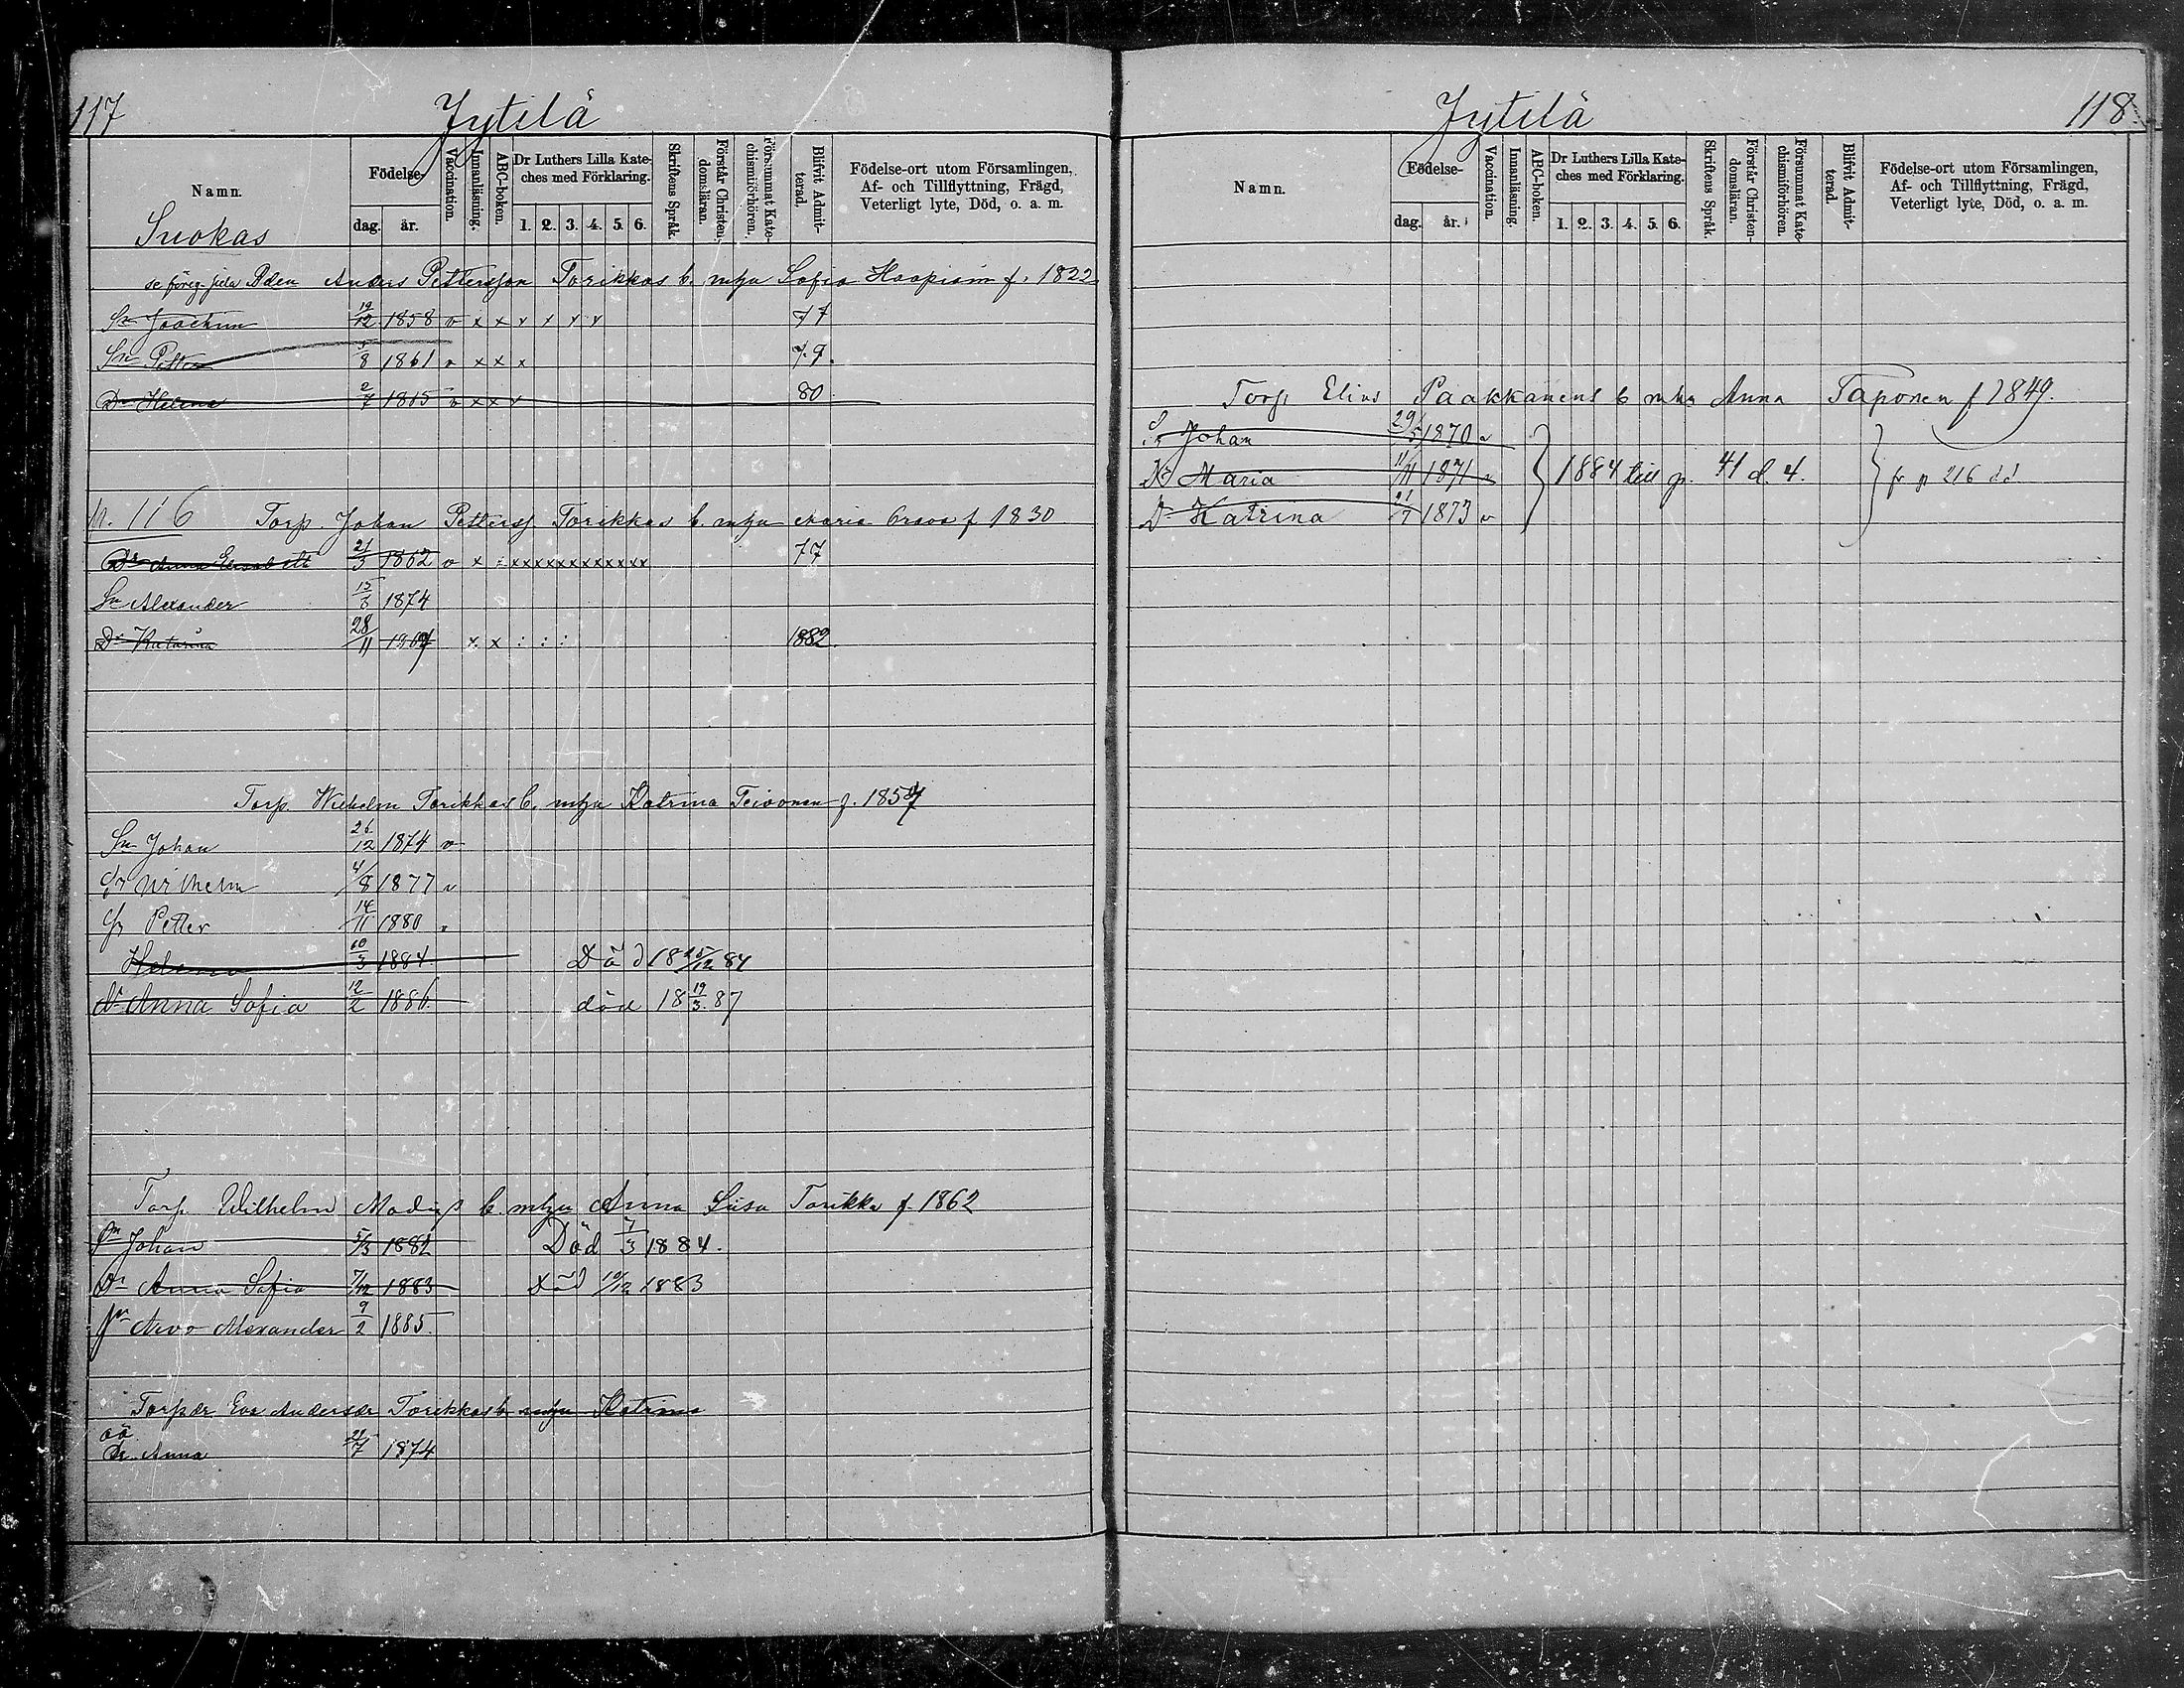 117
Jytilä
Namn.
Födelse-
dag. år.
Vaccination.
Innanläsning.
ABC-boken.
Dr Luthers Lilla Kate-
ches med Förklaring.
1. 2. 3. 4. 5. 6.
Skriftens Språk.
Förstår Christen-
domsläran.
Försummat Kate-
chismiförhören.
Blifvit Admit-
terad.
Födelse-ort utom Församlingen,
Af- och Tillflyttning, Frägd,
Veterligt lyte, Död, o. a. m.
Suokas
se föreg. sida Anders Pettersson Torikkas b. m hu Sofia f. 1822
Sn Joachim 19/12 1858 v x x x x x x 77
Sn Petter 5/8 1861 v x x x 79.
Dr Helena 2/7 1865 v x x x 80
p. 116 Torp. Johan Petterss. Torikkas b. m hu Maria Orava f 1830
Dr Anna Elisabett 21/3 1862 v x : xxxxxxxxxxxx 77
Sn Alexander 15/8 1874
Dr Katarina 28/11 x x : : : 1882.
Torp. Wilhelm Torikkas b. m hu Katrina Teivonen f. 1857
Sn Johan 26/12 1874 v
Sn Wilhelm 4/8 1877 v
Sn Petter 14/11 1880 v
Helena 10/3 1884. Död 18 25/12 84
Dr Anna Sofia 12/2 1886. död 18 19/3. 87
Torp. Wilhelm Modigs b. m hu Anna Liisa Torikka f. 1862
Sn Johan 5/3 1882 Död 7/3 1884.
Dr Anna Sofia 7/12 1883 Död 10/12 1883
Sn Arvo Alexander 9/2 1885.
Torpdr Eva Andersdr Torikkas b m hu Katrina
oä
Dr. Anna 22/7 1874
Jytilä
118.
Namn.
Födelse-
dag. år.
Vaccination.
Innanläsning.
ABC-boken.
Dr Luthers Lilla Kate-
ches med Förklaring.
1. 2. 3. 4. 5. 6.
Skriftens Språk.
Förstår Christen-
domsläran.
Försummat Kate-
chismiförhören.
Blifvit Admit-
terad.
Födelse-ort utom Församlingen,
Af- och Tillflyttning, Frägd,
Veterligt lyte, Död, o. a. m.
Torp Elias Paakkanens b m hu Anna Taponen f 1849.
Sn Johan 29/5 1870 v
Dr Maria 11/11 1871 v 1884 till p. 41 d. 4. fr p 216 d d
Dr Katrina 21/7 1873 v